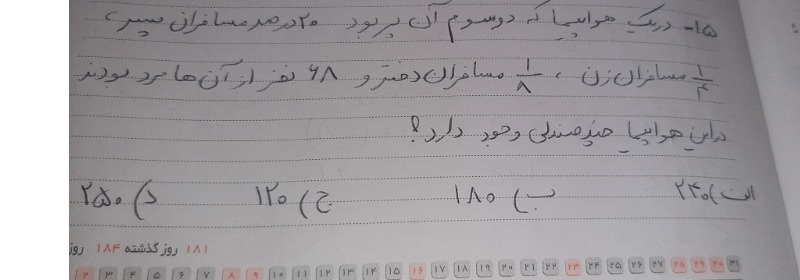 ۱۵- در یک هواپیما که دوسوم آن پر بود ۲۰ درصد مسافران پسر،
۱/۴ مسافران زن ، ۱/۸ مسافران دختر و ۶۸ نفر از آن ها مرد بودند
در این هواپیما چند صندلی وجود دارد؟
الف) ۲۴۰ ب) ۱۸۰ ج) ۱۲۰ د) ۲۵۰
۱۸۱ روز گذشته ۱۸۴ روز
۲ ۳ ۴ ۵ ۶ ۷ ۸ ۹ ۱۰ ۱۱ ۱۲ ۱۳ ۱۴ ۱۵ ۱۶ ۱۷ ۱۸ ۱۹ ۲۰ ۲۱ ۲۲ ۲۳ ۲۴ ۲۵ ۲۶ ۲۷ ۲۸ ۲۹ ۳۰ ۳۱